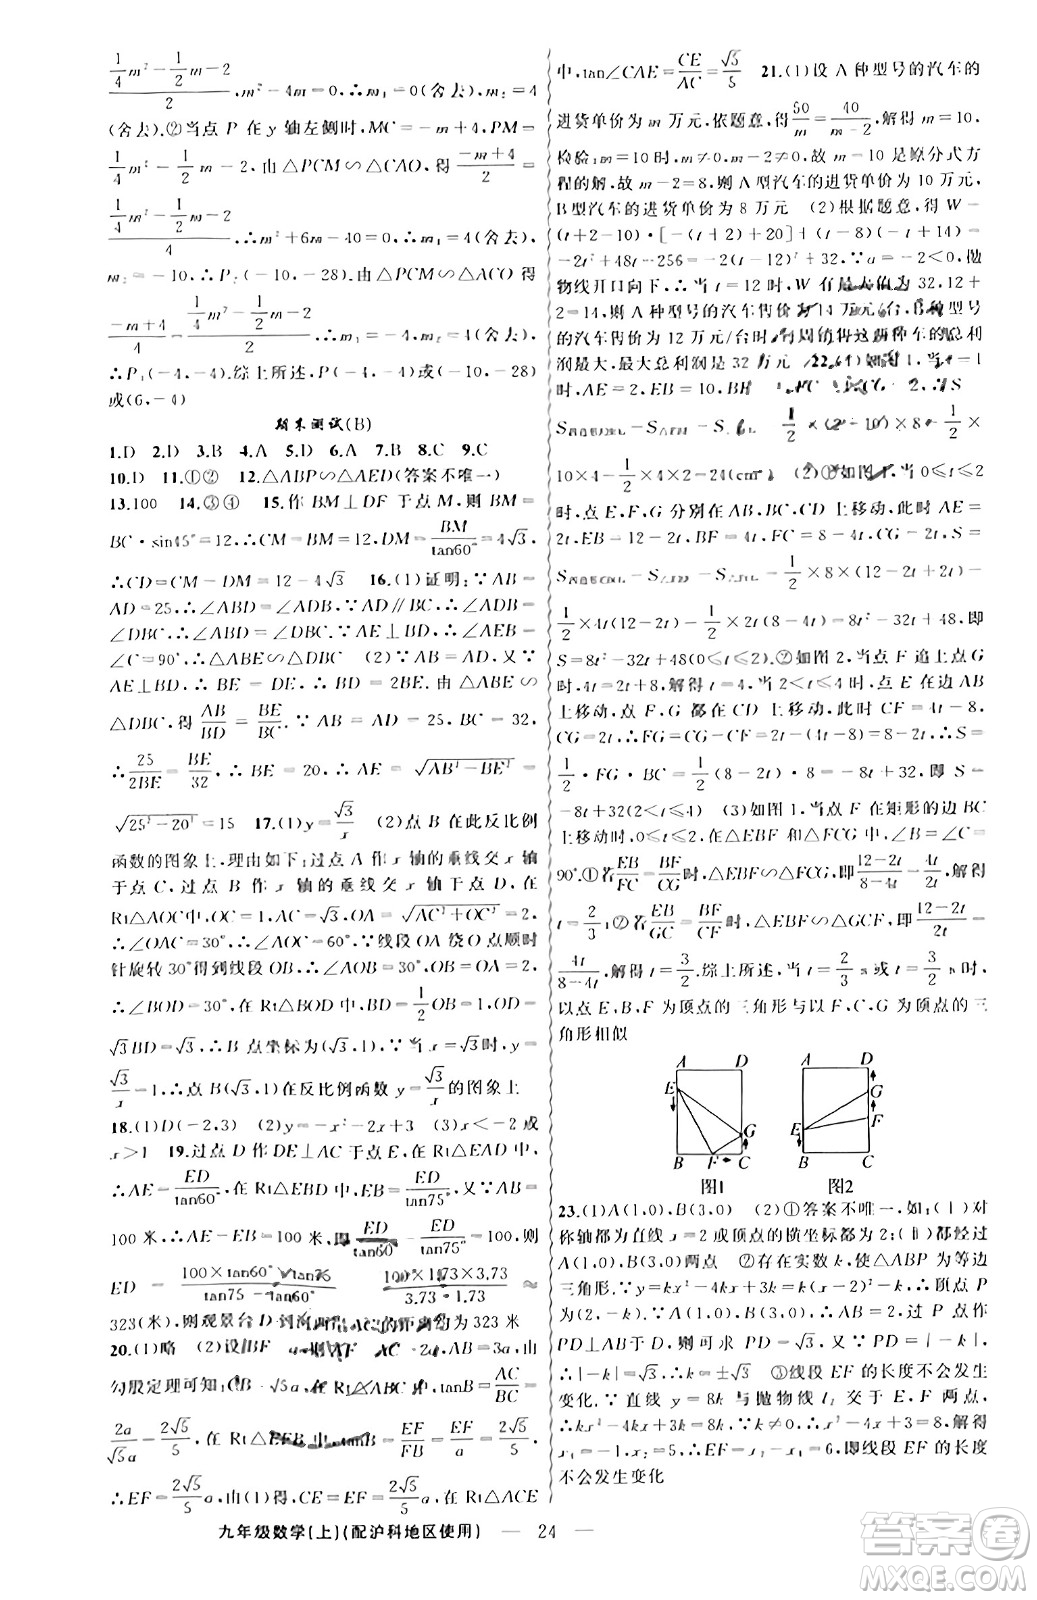 (1/4m²-1/2m-2)/2,m²-4m=0,∴m₁=0(舍去),m₂=4
(舍去).②当点 P 在 y 轴左侧时,MC=-m+4,PM=
1/4m²-1/2m-2.由△PCM∽△CAO,得(-m+4)/2=
(1/4m²-1/2m-2)/4,∴m²+6m-40=0,∴m₁=4(舍去),
m₂=-10,∴P₂(-10,-28).由△PCM∽△ACO,得
∴P₁(-4,-4).综上所述,P(-4,-4)或(-10,-28)
或(6,-4)
期末测试(B)
1.D 2.D 3.B 4.A 5.A 6.D 7.B 8.C 9.C
10.D 11.①② 12.△ABP∽△AED(答案不唯一)
13.100 14.③④ 15.作 BM⊥DF 于点 M,则 BM=
BC·sin45°=12,∴CM=BM=12,DM=BM/tan60°=4√3,
∴CD=CM-DM=12-4√3 16.(1)证明:∵AB=
AD=25,∴∠ABD=∠ADB,∵AD∥BC,∴∠ADB=
∠DBC,∴∠ABD=∠DBC.∵AE⊥BD,∴∠AEB=
∠C=90°,∴△ABE∽△DBC (2)∵AB=AD,又∵
AE⊥BD,∴BE=DE,∴BD=2BE.由△ABE∽
△DBC,得AB/BD=BE/BC.∵AB=AD=25,BC=32,
∴25/2BE=BE/32,∴BE=20,∴AE=√(AB²-BE²)=
√(25²-20²)=15 17.(1)y=√3/x (2)点 B 在此反比例
函数的图象上,理由如下:过点 A 作 x 轴的垂线交 x 轴
于点 C,过点 B 作 x 轴的垂线交 x 轴于点 D.在
Rt△AOC 中,OC=√3,OA=√(AC²+OC²)=2,
∴∠OAC=30°,∴∠AOC=60°,∵线段 OA 绕 O 点顺时
针旋转 30°得到线段 OB,∴∠AOB=30°,OB=OA=2,
∴∠BOD=30°,在 Rt△BOD 中,BD=1/2OB=1,OD=
√3BD=√3,∴B 点坐标为(√3,1).∵当 x=√3时,y=
√3/x=1,∴点 B(√3,1)在反比例函数 y=√3/x的图象上
18.(1)D(-2,3) (2)y=-x²-2x+3 (3)x<-2或
x>1 19.过点 D 作 DE⊥AC 于点 E,在 Rt△EAD 中,
∴AE=ED/tan60°,在 Rt△EBD 中,EB=ED/tan75°,又∵AB=
100 米,∴AE-EB=100 米,即ED/tan60°-ED/tan75°=100,则
ED=(100×tan60°×tan75°)/(tan75°-tan60°)≈(100×1.73×3.73)/(3.73-1.73)≈
323(米),则观景台 D 到河两岸AC的距离约为 323 米
20.(1)略 (2)设BF=a,则AF=AC=2a,AB=3a,由
勾股定理可知,CB=√5a,tanB=AC/BC=
2a/√5a=2√5/5,在 Rt△EFB 中,tanB=EF/FB=EF/a=2√5/5,
∴EF=2√5/5a,由(1)得,CE=EF=2√5/5a,在 Rt△ACE
中,tan∠CAE=CE/AC=√5/5 21.(1)设 A 种型号的汽车的
进货单价为 m 万元,依题意,得50/m=40/(m-2),解得 m=10,
检验:m=10时,m≠0,m-2≠0,故 m=10 是原分式方
程的解,故 m-2=8,则 A 型汽车的进货单价为 10 万元,
B 型汽车的进货单价为 8 万元 (2)根据题意,得 W=
(t+2-10)·[-(t+2)+20]+(t-8)(-t+14)=
-2t²+48t-256=-2(t-12)²+32.∵a=-2<0,抛
物线开口向下,∴当 t=12 时,W 有最大值为 32,12+
2=14,则 A 种型号的汽车售价为14 万元/台,B种型号
的汽车售价为 12 万元/台时,每周销售这两种车的总利
润最大,最大总利润是 32 万元 22.(1)①如图1,当t=1
时,AE=2,EB=10,BF=4,FC=4,CG=2,∴S=
10×4-1/2×4×2=24(cm²) ②如图1,当 0≤t≤2
时,点 E,F,G 分别在 AB,BC,CD 上移动,此时 AE=
2t,EB=12-2t,BF=4t,FC=8-4t,CG=2t,∴S=
1/2×4t(12-2t)-1/2×2t(8-4t)=8t²-32t+48,即
S=8t²-32t+48(0≤t≤2).③如图 2,当点 F 追上点 G
时,4t=2t+8,解得 t=4,当2<t≤4时,点 E 在 AB
上移动,点 F,G 都在 CD 上移动,此时 CF=4t-8,
CG=2t,∴FG=CG-CF=2t-(4t-8)=8-2t,∴S=
1/2·FG·BC=1/2(8-2t)·8=-8t+32,即 S=
-8t+32(2<t≤4) (3)如图 1,当点 F 在矩形的边 BC
上移动时,0≤t≤2,在△EBF 和△FCG 中,∠B=∠C=
90°.①若EB/FC=BF/CG时,△EBF∽△FCG,即(12-2t)/(8-4t)=4t/2t,解得
t=2/3;②若EB/GC=BF/CF时,△EBF∽△GCF,即(12-2t)/2t=
4t/(8-4t),解得 t=3/2.综上所述,当 t=2/3 s或 t=3/2 s时,
以点 E,B,F 为顶点的三角形与以 F,C,G 为顶点的三
角形相似
A D E G B F C
图1
A D G E F B C
图2
23.(1)A(1,0),B(3,0) (2)①答案不唯一,如:(Ⅰ)对
称轴都为直线 x=2或顶点的横坐标都为2;(Ⅱ)都经过
A(1,0),B(3,0)两点 ②存在实数 k,使△ABP 为等边
三角形.∵y=kx²-4kx+3k=k(x-2)²-k,∴顶点 P
为(2,-k).∵A(1,0),B(3,0),∴AB=2,过 P 点作
PD⊥AB于点 D,则可求 PD=√3,又∵PD=|-k|,
∴|-k|=√3,∴k=±√3 ③线段 EF 的长度不会发生
变化.∵直线 y=8k 与抛物线 l₂ 交于 E,F 两点,
∴kx²-4kx+3k=8k,∵k≠0,∴x²-4x+3=8,解得
x₁=-1,x₂=5,∴EF=x₂-x₁=6,即线段 EF 的长度
不会发生变化
九年级数学(上)(配沪科地区使用) — 24 —
作业精灵
MXQE.COM